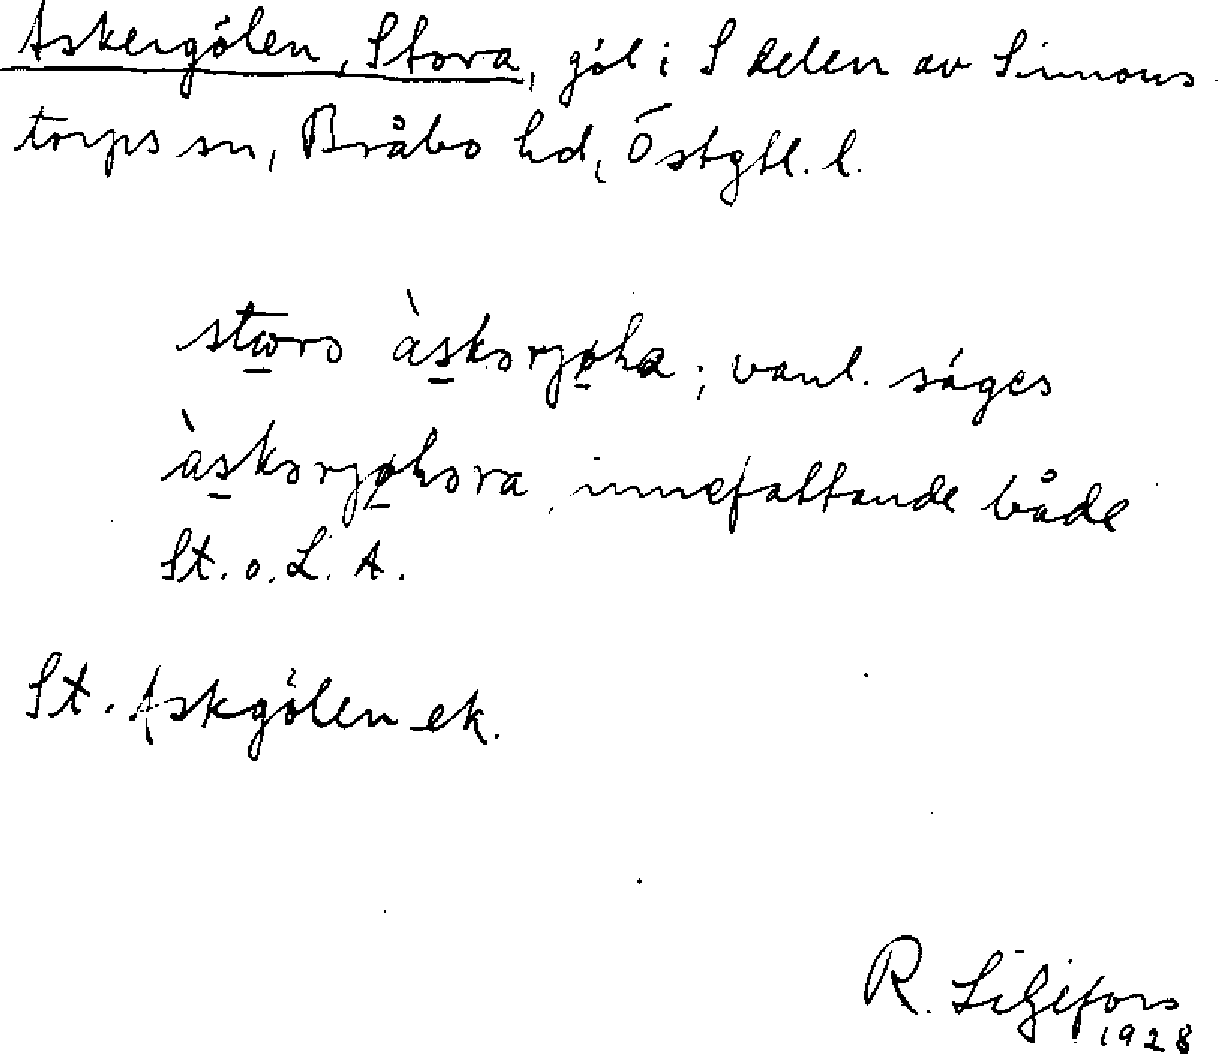 Askergölen, Stora, göl i S delen av Simons-
torps sn, Bråbo hd, Östgtl. l.
storə àskərjøla; vanl. säges
àskərjøləra innefattande både
St. o. L. A.
St. Askgölen ek.
R. Liljefors
1928